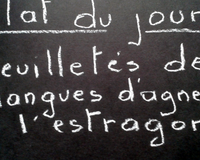 lat du jour
euilletés de
langues d'agne
l'estragon